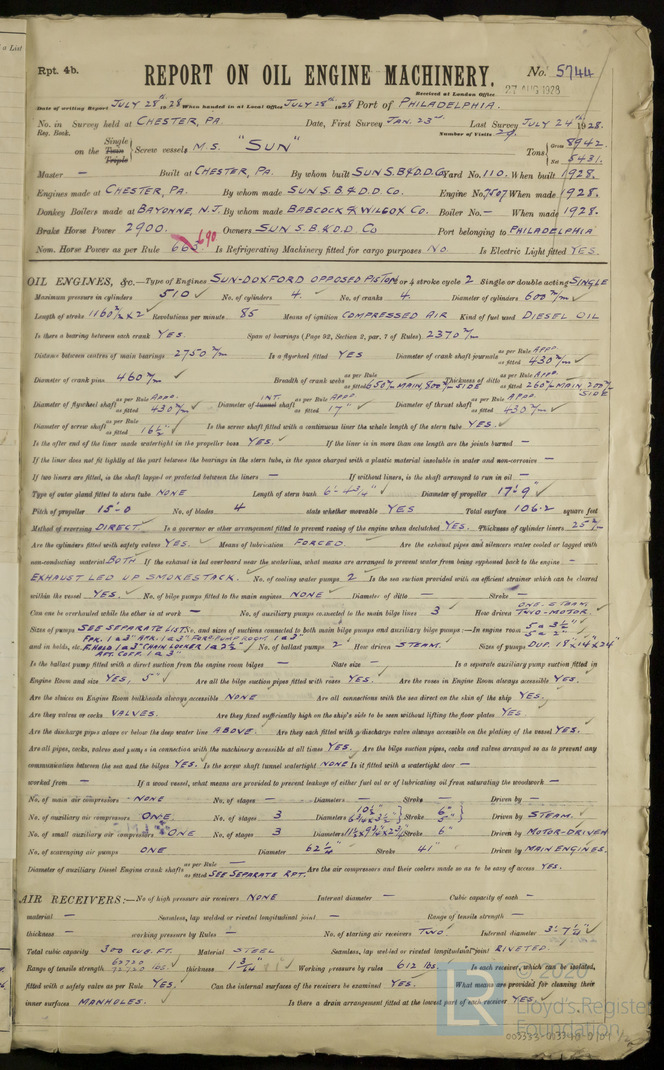 a List
Rpt. 4b.
REPORT ON OIL ENGINE MACHINERY.
No. 5744
Received at London Office
27 AUG 1928
Date of writing Report JULY 28th 1928 When handed in at Local Office JULY 28th 1928 Port of PHILADELPHIA.
No. in Survey held at CHESTER, PA. Date, First Survey JAN. 23rd Last Survey JULY 24th 1928.
Reg. Book. Number of Visits 29.
on the Single Twin Triple Screw vessel M.S. "SUN" Tons Gross 8942 Net 5431.
Master — Built at CHESTER, PA. By whom built SUN S.B.&D.D. Co. Yard No. 110. When built 1928.
Engines made at CHESTER, PA. By whom made SUN S.B. & D.D. Co. Engine No. 7507 When made 1928.
Donkey Boilers made at BAYONNE, N.J. By whom made BABCOCK & WILCOX Co. Boiler No. — When made 1928.
Brake Horse Power 2900. Owners SUN S.B. & D.D Co Port belonging to PHILADELPHIA
Nom. Horse Power as per Rule 663 690 Is Refrigerating Machinery fitted for cargo purposes NO. Is Electric Light fitted YES.
OIL ENGINES, &c.—Type of Engines SUN-DOXFORD OPPOSED PISTON 2 or 4 stroke cycle 2 Single or double acting SINGLE
Maximum pressure in cylinders 510 No. of cylinders 4. No. of cranks 4. Diameter of cylinders 600 m/m
Length of stroke 1160 m/m x 2 Revolutions per minute 85 Means of ignition COMPRESSED AIR Kind of fuel used DIESEL OIL
Is there a bearing between each crank YES. Span of bearings (Page 92, Section 2, par. 7 of Rules) 2370 m/m
Distance between centres of main bearings 2750 m/m Is a flywheel fitted YES Diameter of crank shaft journals as per Rule APPD. as fitted 430 m/m
Diameter of crank pins 460 m/m Breadth of crank webs as per Rule as fitted 650 m/m MAIN, 800 m/m SIDE Thickness of ditto as per Rule APPD. as fitted 260 m/m MAIN, 200 m/m SIDE
Diameter of flywheel shaft as per Rule APPD. as fitted 430 m/m Diameter of INT. tunnel shaft as per Rule APPD as fitted 17" Diameter of thrust shaft as per Rule APPD. as fitted 430 m/m
Diameter of screw shaft as per Rule as fitted 16 1/2" Is the screw shaft fitted with a continuous liner the whole length of the stern tube YES.
Is the after end of the liner made watertight in the propeller boss YES. If the liner is in more than one length are the joints burned —
If the liner does not fit tightly at the part between the bearings in the stern tube, is the space charged with a plastic material insoluble in water and non-corrosive —
If two liners are fitted, is the shaft lapped or protected between the liners — If without liners, is the shaft arranged to run in oil —
Type of outer gland fitted to stern tube NONE Length of stern bush 6'-4 3/4" Diameter of propeller 17'-9"
Pitch of propeller 15'-0 No. of blades 4 state whether moveable YES Total surface 106.2 square feet
Method of reversing DIRECT Is a governor or other arrangement fitted to prevent racing of the engine when declutched YES. Thickness of cylinder liners 25 m/m
Are the cylinders fitted with safety valves YES. Means of lubrication FORCED. Are the exhaust pipes and silencers water cooled or lagged with
non-conducting material BOTH If the exhaust is led overboard near the waterline, what means are arranged to prevent water from being syphoned back to the engine —
EXHAUST LED UP SMOKESTACK. No. of cooling water pumps 2 Is the sea suction provided with an efficient strainer which can be cleared
within the vessel YES. No. of bilge pumps fitted to the main engines NONE Diameter of ditto — Stroke —
Can one be overhauled while the other is at work — No. of auxiliary pumps connected to the main bilge lines 3 How driven ONE STEAM, TWO-MOTOR.
Sizes of pumps SEE SEPARATE LIST. No. and sizes of suctions connected to both main bilge pumps and auxiliary bilge pumps:—In engine room 5 a 3 1/2" 5 a 2"
and in holds, etc. F.HOLD 1 a 3" CHAIN LOCKER 1 a 2 1/2" No. of ballast pumps 2 How driven STEAM. Sizes of pumps DUP. 18 1/2 x 14 x 24"
Is the ballast pump fitted with a direct suction from the engine room bilges — State size — Is a separate auxiliary pump suction fitted in
Engine Room and size YES, 5" Are all the bilge suction pipes fitted with roses YES. Are the roses in Engine Room always accessible YES.
Are the sluices on Engine Room bulkheads always accessible NONE Are all connections with the sea direct on the skin of the ship YES.
Are they valves or cocks VALVES. Are they fixed sufficiently high on the ship's side to be seen without lifting the floor plates YES.
Are the discharge pipes above or below the deep water line ABOVE. Are they each fitted with a discharge valve always accessible on the plating of the vessel YES.
Are all pipes, cocks, valves and pumps in connection with the machinery accessible at all times YES. Are the bilge suction pipes, cocks and valves arranged so as to prevent any
communication between the sea and the bilges YES. Is the screw shaft tunnel watertight NONE Is it fitted with a watertight door —
worked from — If a wood vessel, what means are provided to prevent leakage of either fuel oil or of lubricating oil from saturating the woodwork —
No. of main air compressors NONE No. of stages — Diameters — Stroke — Driven by —
No. of auxiliary air compressors ONE. No. of stages 3 Diameters Stroke Driven by STEAM.
No. of small auxiliary air compressors ONE No. of stages 3 Diameters Stroke 6" Driven by MOTOR-DRIVEN
No. of scavenging air pumps ONE Diameter 62 1/4" Stroke 41" Driven by MAIN ENGINES.
Diameter of auxiliary Diesel Engine crank shafts as per Rule — as fitted SEE SEPARATE RPT. Are the air compressors and their coolers made so as to be easy of access YES.
AIR RECEIVERS:—No. of high pressure air receivers NONE Internal diameter — Cubic capacity of each —
material — Seamless, lap welded or riveted longitudinal joint — Range of tensile strength —
thickness — working pressure by Rules — No. of starting air receivers TWO Internal diameter 3'-7 1/4"
Total cubic capacity 300 CUB. FT. Material STEEL Seamless, lap welded or riveted longitudinal joint RIVETED.
Range of tensile strength thickness 1 3/64" Working pressure by rules 612 lbs. Is each receiver, which can be isolated,
fitted with a safety valve as per Rule YES. Can the internal surfaces of the receivers be examined YES. What means are provided for cleaning their
inner surfaces MANHOLES. Is there a drain arrangement fitted at the lowest part of each receiver YES.
LR © 2020 Lloyd's Register Foundation